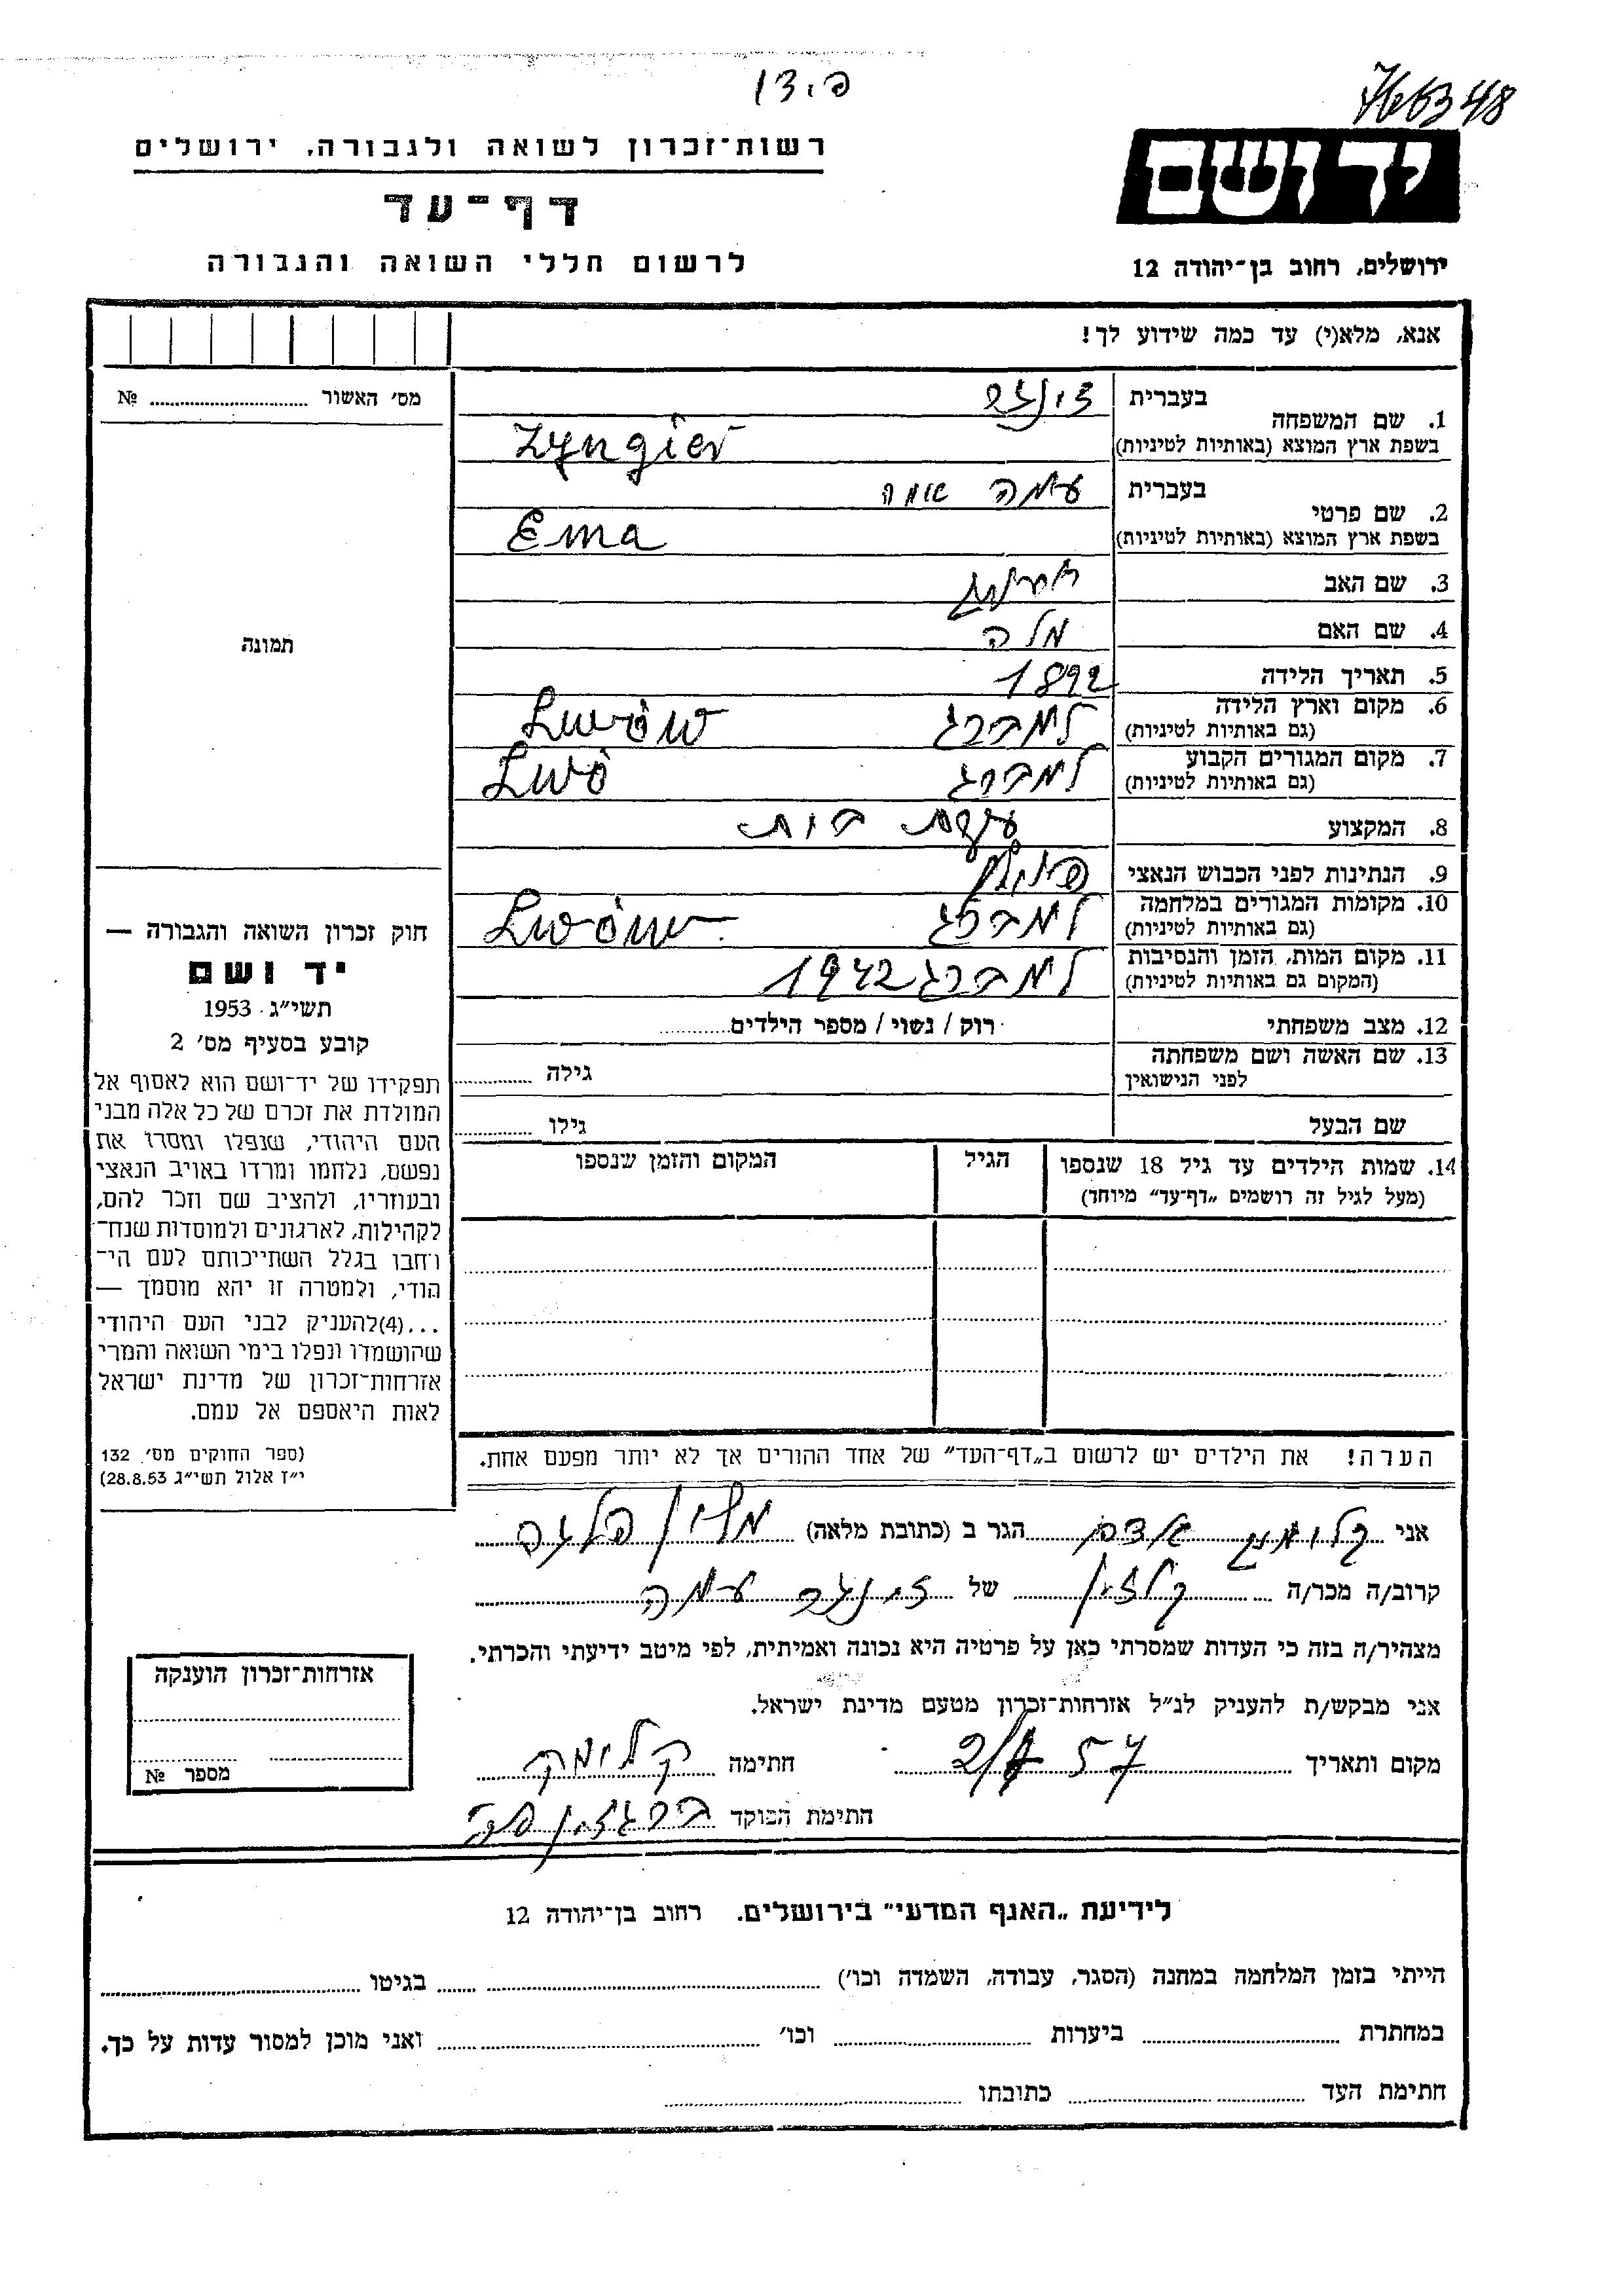 פ.צ1
רשות־זכרון לשואה ולגבורה, ירושלים
דף־עד
לרשום חללי השואה והגבורה
יד ושם
ירושלים, רחוב בן־יהודה 12
אנא, מלא(י) עד כמה שידוע לך!
מס׳ האשור № 
1. שם המשפחה
בעברית
בשפת ארץ המוצא (באותיות לטיניות) Zyngier
2. שם פרטי
בעברית עמה אמה
בשפת ארץ המוצא (באותיות לטיניות) Ema
3. שם האב
4. שם האם מלה
5. תאריך הלידה 1892
6. מקום וארץ הלידה למברג Lwów
(גם באותיות לטיניות)
7. מקום המגורים הקבוע למברג Lwó
(גם באותיות לטיניות)
8. המקצוע עקרת בית
9. הנתינות לפני הכבוש הנאצי פולנית
10. מקומות המגורים במלחמה למברג Lwów
(גם באותיות לטיניות)
11. מקום המות, הזמן והנסיבות למברג 1942
(המקום גם באותיות לטיניות)
12. מצב משפחתי רוק / נשוי / מספר הילדים
13. שם האשה ושם משפחתה
לפני הנישואין גילה
שם הבעל גילו
14. שמות הילדים עד גיל 18 שנספו הגיל המקום והזמן שנספו
(מעל לגיל זה רושמים „דף־עד״ מיוחד)
הערה! את הילדים יש לרשום ב„דף־העד״ של אחד ההורים אך לא יותר מפעם אחת.
תמונה
חוק זכרון השואה והגבורה —
יד ושם
תשי״ג 1953
קובע בסעיף מס׳ 2
תפקידו של יד־ושם הוא לאסוף אל
המולדת את זכרם של כל אלה מבני
העם היהודי, שנפלו ומסרו את
נפשם, נלחמו ומרדו באויב הנאצי
ובעוזריו, ולהציב שם וזכר להם,
לקהילות, לארגונים ולמוסדות שנח־
רחבו בגלל השתייכותם לעם הי־
הודי, ולמטרה זו יהא מוסמך —
...(4)להעניק לבני העם היהודי
שהושמדו ונפלו בימי השואה והמרי
אזרחות־זכרון של מדינת ישראל
לאות היאספם אל עמם.
(ספר החוקים מס׳ 132
י״ז אלול תשי״ג 28.8.53)
אני הגר ב (כתובת מלאה)
קרוב/ה מכר/ה של עמה
מצהיר/ה בזה כי העדות שמסרתי כאן על פרטיה היא נכונה ואמיתית, לפי מיטב ידיעתי והכרתי.
אני מבקש/ת להעניק לנ״ל אזרחות־זכרון מטעם מדינת ישראל.
מקום ותאריך 57 חתימה
חתימת הפוקד
אזרחות־זכרון הוענקה
מספר №
לידיעת „האגף המדעי״ בירושלים, רחוב בן־יהודה 12
הייתי בזמן המלחמה במחנה (הסגר, עבודה, השמדה וכו׳) בגיטו
במחתרת ביערות וכו׳ ואני מוכן למסור עדות על כך.
חתימת העד כתובתו